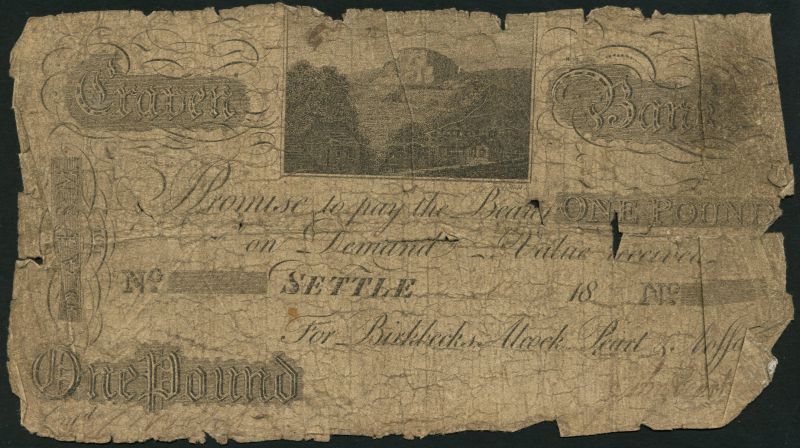 Craven Bank
Promise to pay the Bearer ONE POUND
on Demand Value received
No SETTLE 18 No
For Birkbecks, Alcock, Peart &
One Pound